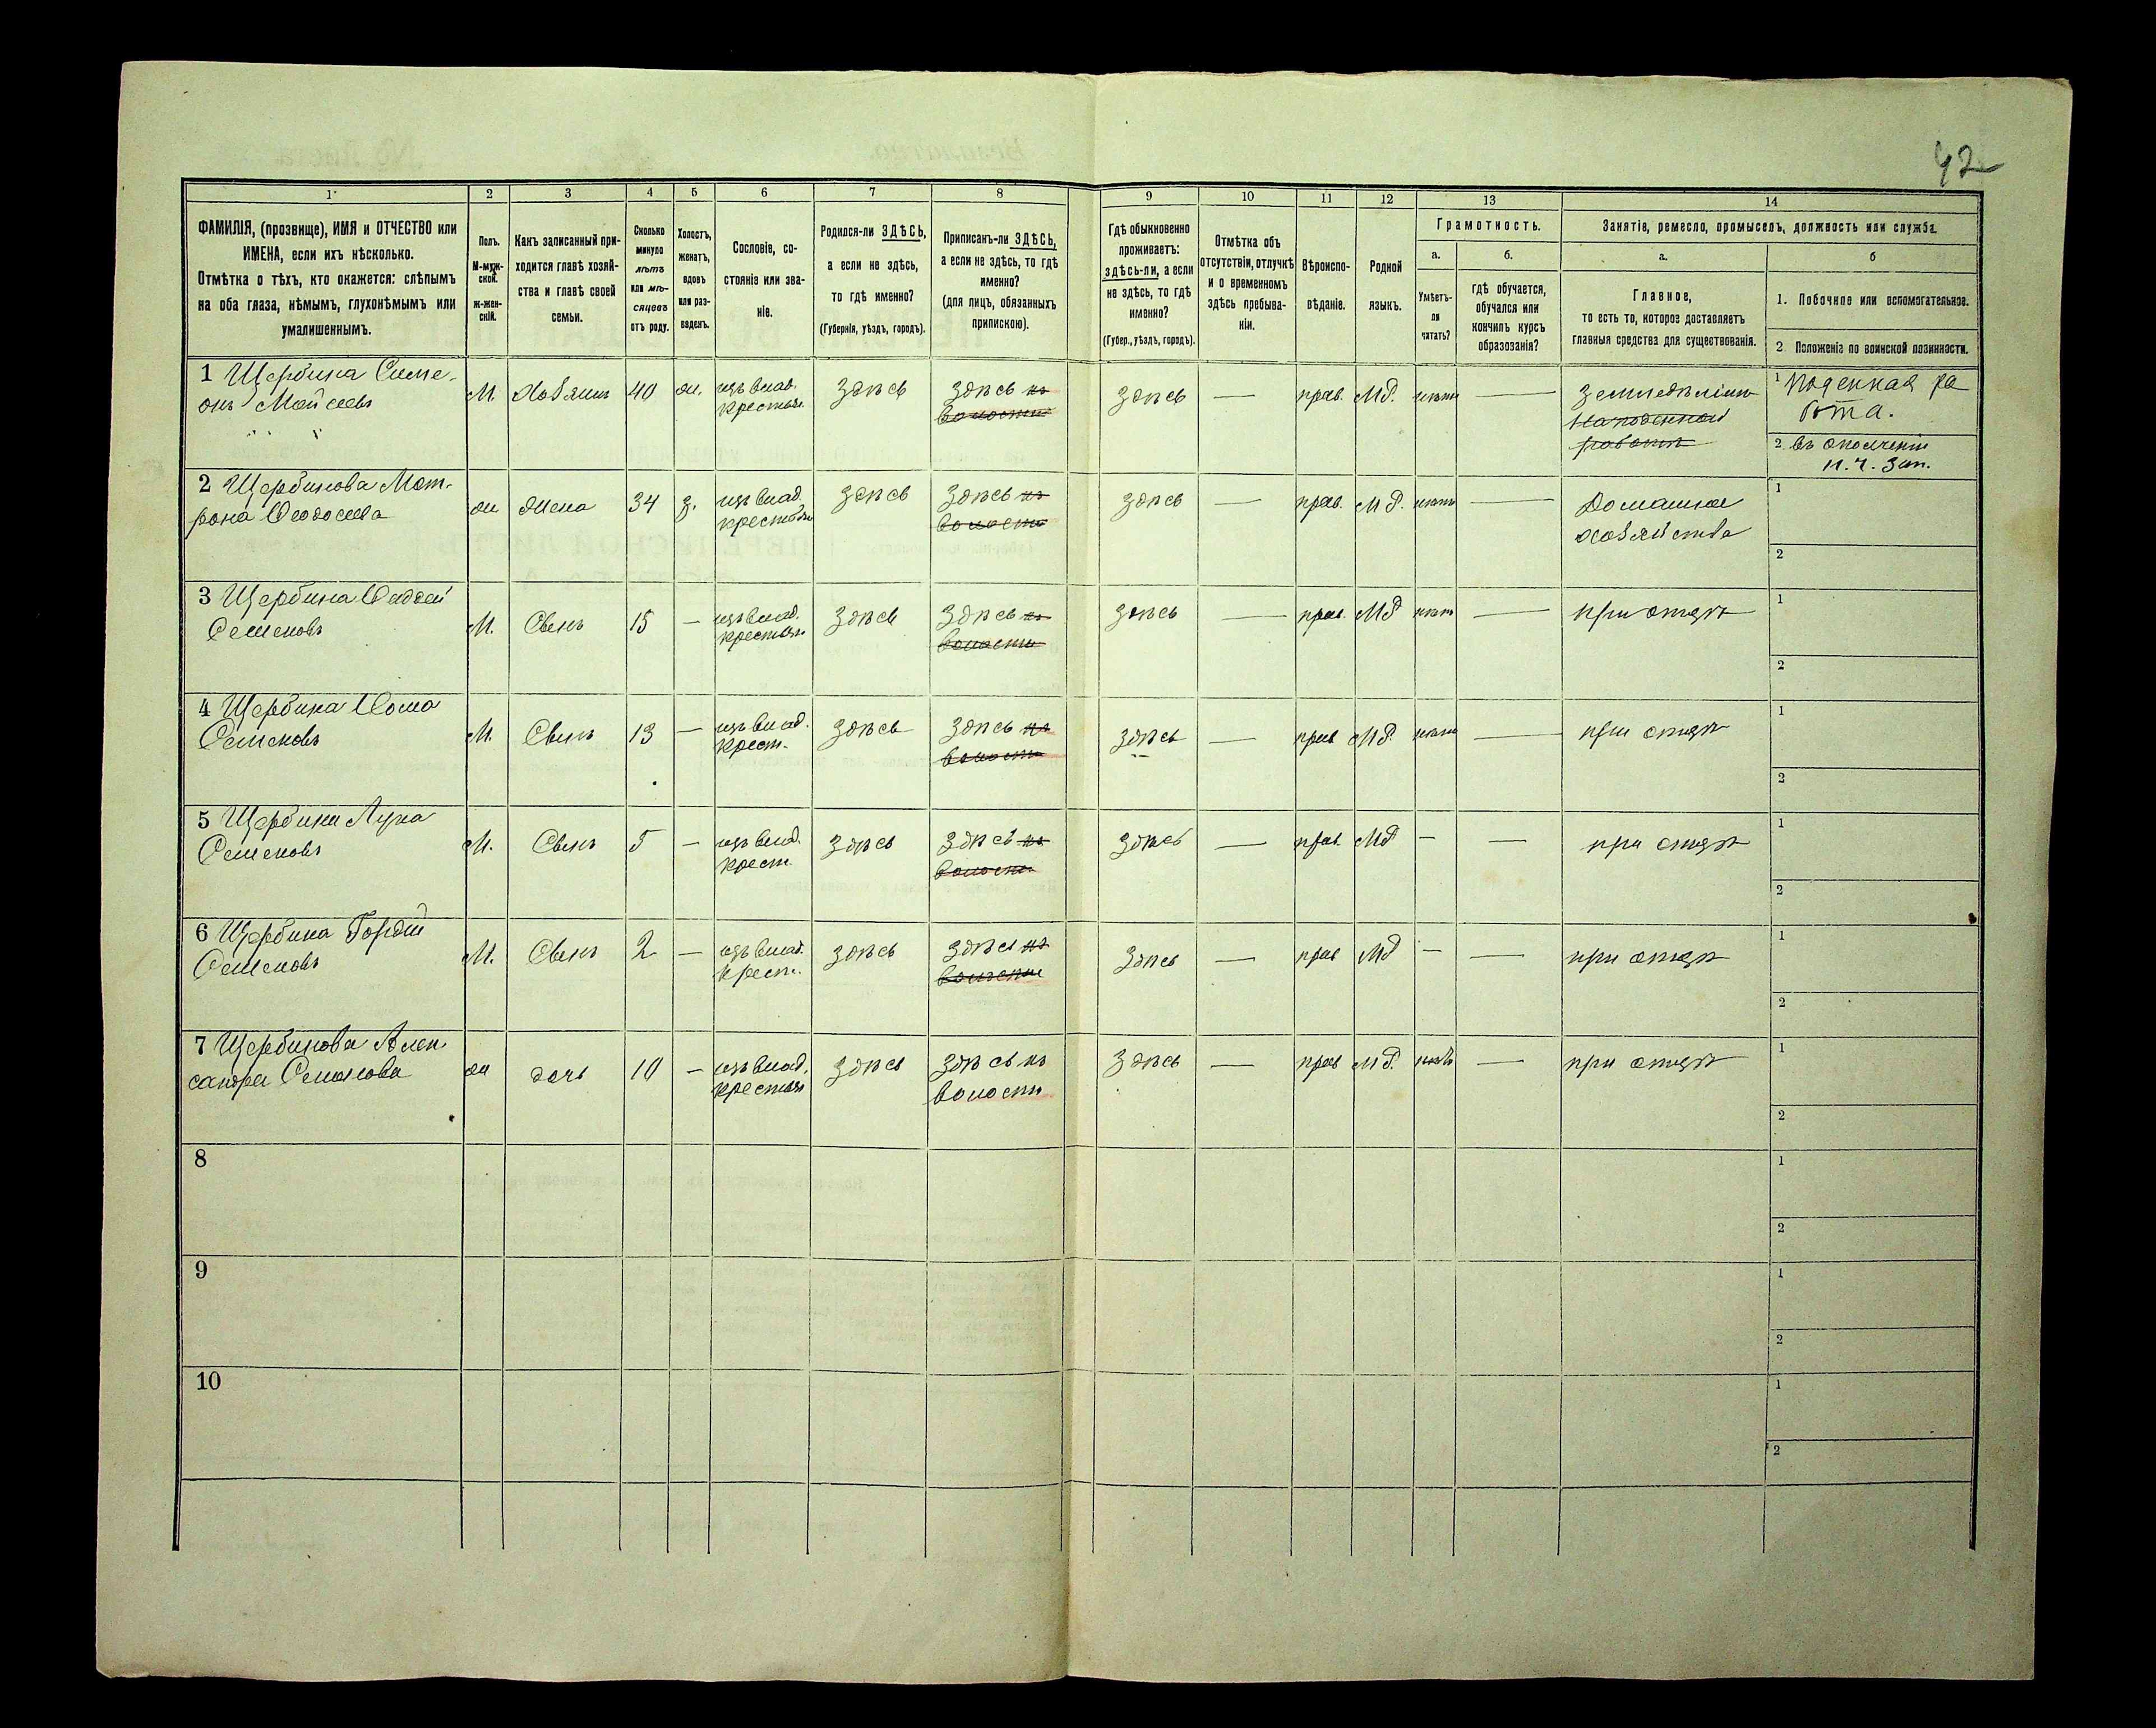 42
1 2 3 4 5 6 7 8 9 10 11 12 13 14
ФАМИЛІЯ, (прозвище), ИМЯ и ОТЧЕСТВО или
ИМЕНА, если ихъ нѣсколько.
Отмѣтка о тѣхъ, кто окажется: слѣпымъ
на оба глаза, нѣмымъ, глухонѣмымъ или
умалишеннымъ.
Полъ.
М-муж-
ской.
ж-жен-
скій.
Какъ записанный при-
ходится главѣ хозяй-
ства и главѣ своей
семьи.
Сколько
минуло
лѣтъ
или мѣ-
сяцевъ
отъ роду.
Холостъ,
женатъ,
вдовъ
или раз-
веденъ.
Сословіе, со-
стояніе или зва-
ніе.
Родился-ли ЗДѢСЬ,
а если не здѣсь,
то гдѣ именно?
(Губернія, уѣздъ, городъ).
Приписанъ-ли ЗДѢСЬ,
а если не здѣсь, то гдѣ
именно?
(для лицъ, обязанныхъ
припискою).
Гдѣ обыкновенно
проживаетъ:
здѣсь-ли, а если
не здѣсь, то гдѣ
именно?
(Губер., уѣздъ, городъ).
Отмѣтка объ
отсутствіи, отлучкѣ
и о временномъ
здѣсь пребыва-
ніи.
Вѣроиспо-
вѣданіе.
Родной
языкъ.
Грамотность.
а.
Умѣетъ-
ли
читать?
б.
гдѣ обучается,
обучался или
кончилъ курсъ
образованія?
Занятіе, ремесло, промыселъ, должность или служба.
а.
Главное,
то есть то, которое доставляетъ
главныя средства для существованія.
б
1. Побочное или вспомогательное.
2. Положеніе по воинской повинности.
1 Щербина Симе-
онъ Мойсеевъ
М. Хозяинъ 40 ж. изъ влад.
крестьян
здѣсь здѣсь въ
волости
здѣсь — прав. МР. нѣтъ —
Земледѣліе
На поденной
работѣ
1 Поденная ра
бота.
2. въ ополченіи
2 Щербинова Мот-
рона
ж жена 34 з. изъ влад
крестьян
здѣсь здѣсь въ
волости
здѣсь — прав. МР. нѣтъ —
Домашнее
хозяйства
1
2
3 Щербина Фаддей
Семеновъ
М. Сынъ 15 — изъ влад.
крестьян
здѣсь здѣсь въ
волости
здѣсь — прав. МР нѣтъ —
при отцѣ
1
2
4 Щербина Фома
Семеновъ
М. Сынъ 13 — изъ влад.
крест.
здѣсь здѣсь въ
волости
здѣсь — прав МР. нѣтъ —
при отцѣ
1
2
5 Щербина Лука
Семеновъ
М. Сынъ 5 — изъ влад.
крест.
здѣсь здѣсь въ
волости
здѣсь — прав. МР — —
при отцѣ
1
2
6 Щербина Гордій
Семеновъ
М. Сынъ 2 — изъ влад.
крест.
здѣсь здѣсь въ
волости
здѣсь — прав МР — —
при отцѣ
1
2
7 Щербинова Алек
сандра Семенова
ж дочь 10 — изъ влад.
крестьян
здѣсь здѣсь въ
волости
здѣсь — прав МР. нѣтъ —
при отцѣ
1
2
8
1
2
9
1
2
10
1
2